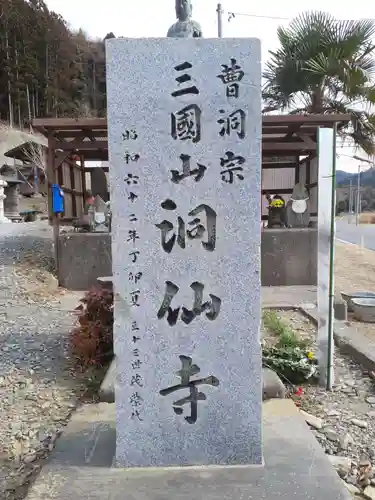 曹洞宗
三国山洞仙寺
昭和六十二年丁卯夏 三十三世